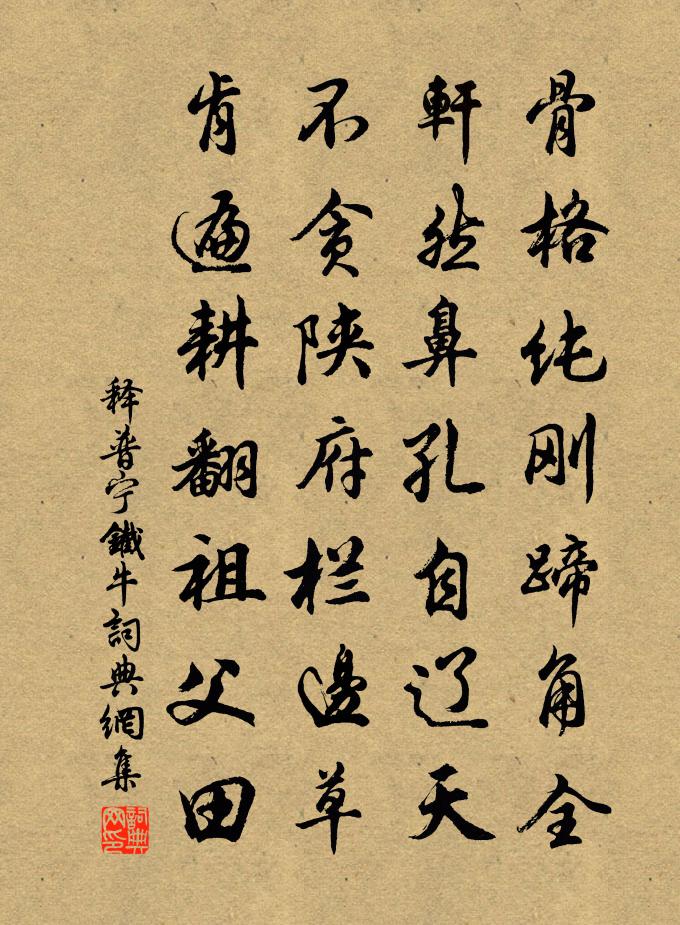 骨格纯刚蹄角全
軒然鼻孔自辽天
不贪陕府栏邊草
肯遍耕翻祖父田
释普宁鐵牛詞典網集
詞典网印